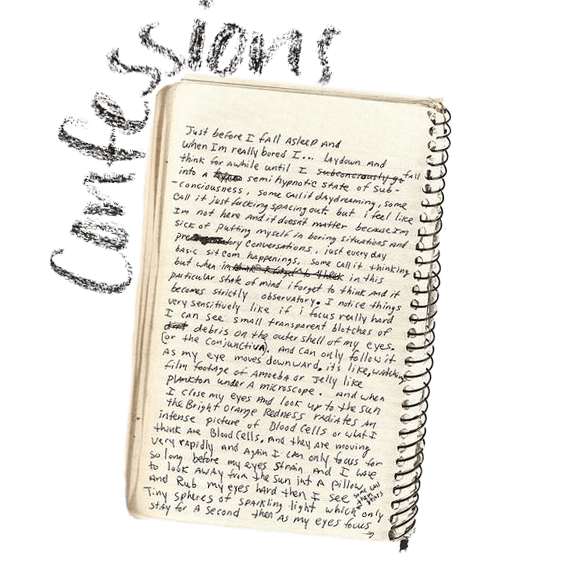 Confessions
Just before I fall Asleep And
when I'm really bored I... laydown And
think for awhile until I subconsciously go fall
into a semi hypnotic state of sub-
-conciousness, some call it daydreaming, some
call it just fucking spacing out but i feel like
Im not here And it doesnt matter because Im
sick of putting myself in boring situations and
conversations, just every day
basic sitcom happenings, some call it thinking
but when in this
particular state of mind i forget to think and it
becomes strictly observatory. I notice things
very sensitively like if i focus really hard
I can see small transparent blotches of
debris on the outer shell of my eyes.
(or the conjunctiva). And can only follow it
As my eye moves downward. its like, watching
film footage of Amoeba or Jelly like
plankton under a microscope. And when
I close my eyes And look up to the sun
the Bright orange Redness radiates An
intense picture of Blood cells or what I
think are Blood Cells. And they are moving
very rapidly and Again I can only focus for
so long before my eyes strain and I have
to look AWAY from the sun into a pillow
And Rub my eyes hard then I see some call them stars
Tiny spheres of sparkling light which only
stay for A second then As my eyes focus